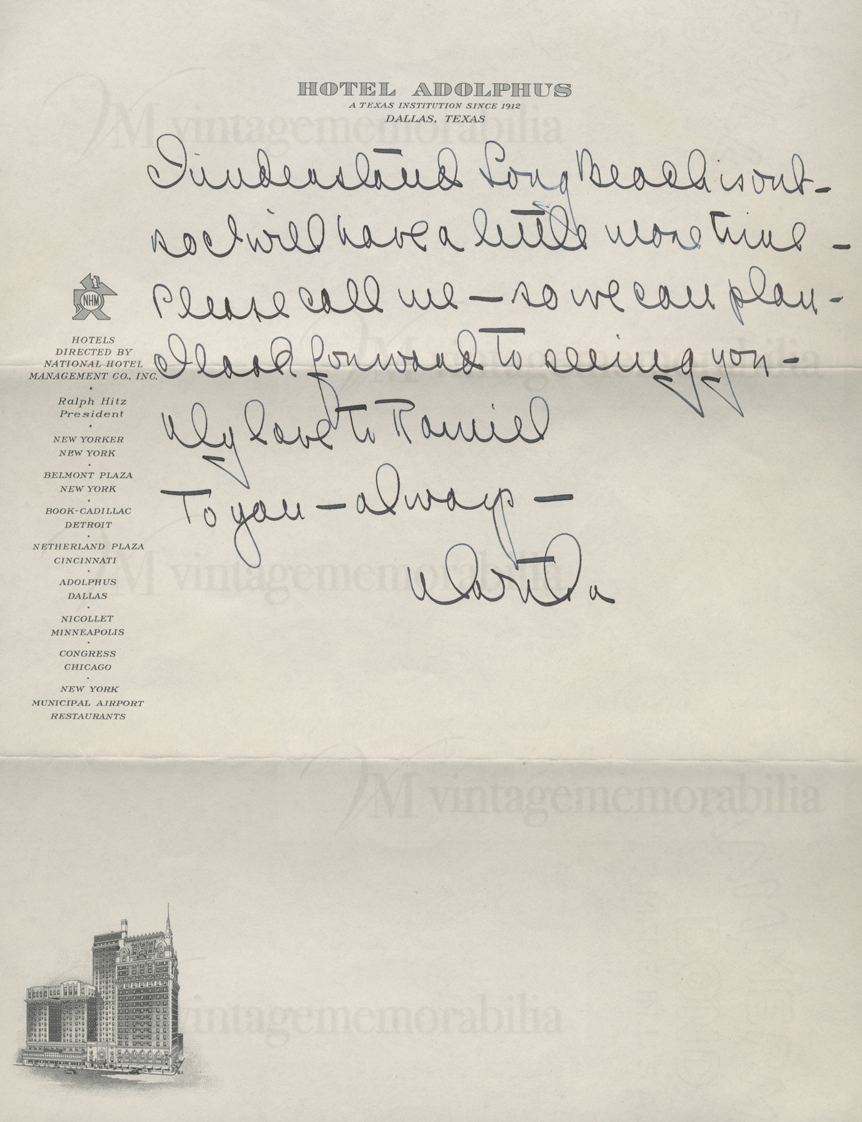 HOTEL ADOLPHUS
A TEXAS INSTITUTION SINCE 1912
DALLAS, TEXAS
I understand Long Beach is out –
so I will have a little more time –
Please call me – so we can plan –
I look forward to seeing you –
My love to Ramiel
To you – always –
Martha
NHM
HOTELS
DIRECTED BY
NATIONAL HOTEL
MANAGEMENT CO., INC.
Ralph Hitz
President
NEW YORKER
NEW YORK
BELMONT PLAZA
NEW YORK
BOOK-CADILLAC
DETROIT
NETHERLAND PLAZA
CINCINNATI
ADOLPHUS
DALLAS
NICOLLET
MINNEAPOLIS
CONGRESS
CHICAGO
NEW YORK
MUNICIPAL AIRPORT
RESTAURANTS
VM vintagememorabilia
VM vintagememorabilia
VM vintagememorabilia
VM vintagememorabilia
vintagememorabilia